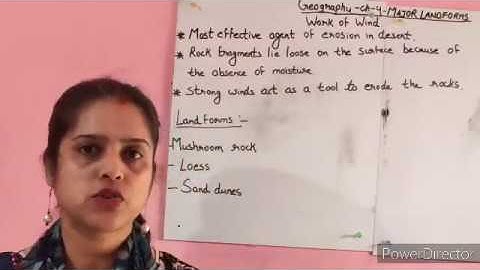 Geography -Ch-4- MAJOR LANDFORMS
Work of Wind
* Most effective agent of erosion in desert.
* Rock fragments lie loose on the surface because of
the absence of moisture
* Strong winds act as a tool to erode the rocks.
Land Forms :-
-Mushroom rock
- Loess
- Sand dunes
PowerDirector